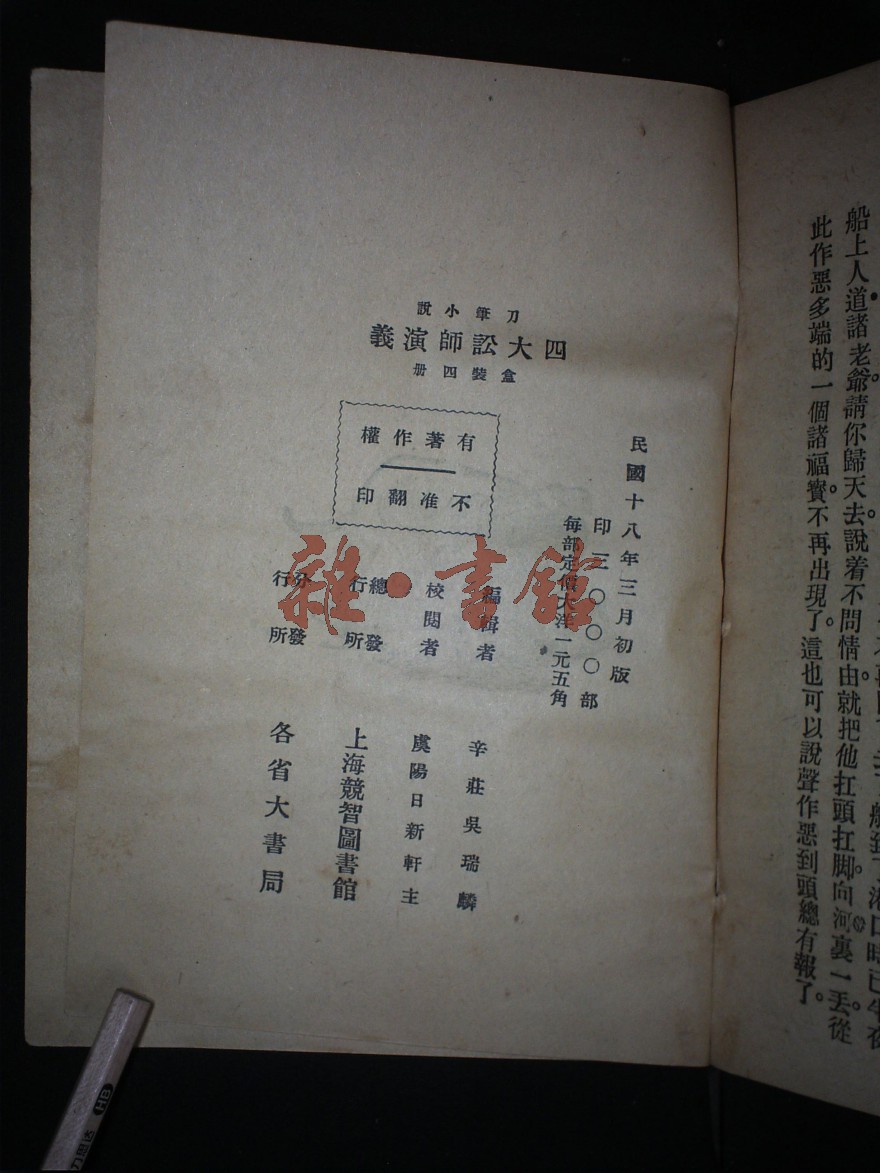 船上人道諸老爺請你歸天去。說着不問情由。就把他扛頭扛脚。向河裏一丟。從
此作惡多端的一個諸福寶。不再出現了。這也可以說聲作惡到頭總有報了。
刀筆小說
四大訟師演義
盒裝四册
有著作權
不准翻印
民國十八年三月初版
印三〇〇〇部
每部定價大洋一元五角
編輯者 辛莊吳瑞麟
校閱者 虞陽日新軒主
總發行所 上海競智圖書館
分發行所 各省大書局
雜·書館
HB